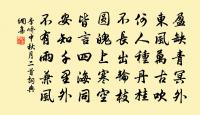 盈缺青冥外
東風萬古吹
何人種丹桂
不長出輪枝
圓魄上寒空
皆言四海同
安知千里外
不有雨兼風
李嶠中秋月二首詞典
網集